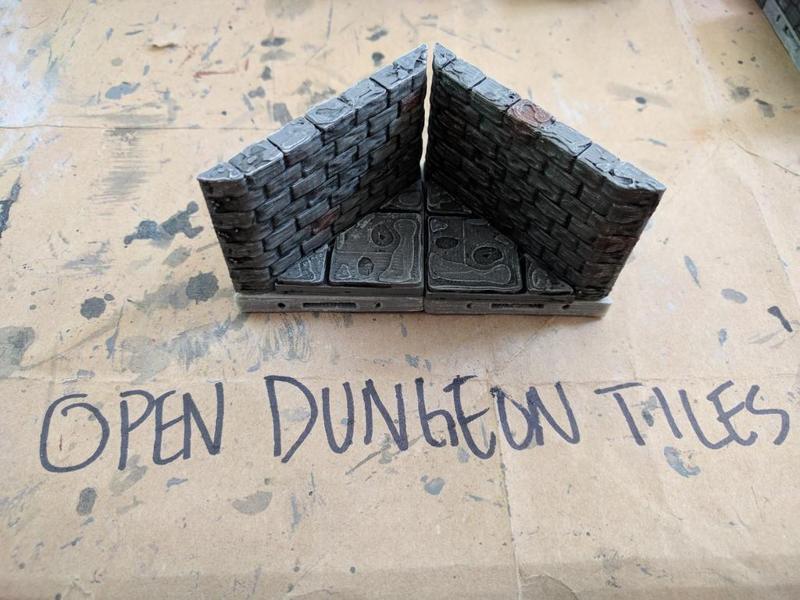 OPEN DUNGEON TILES